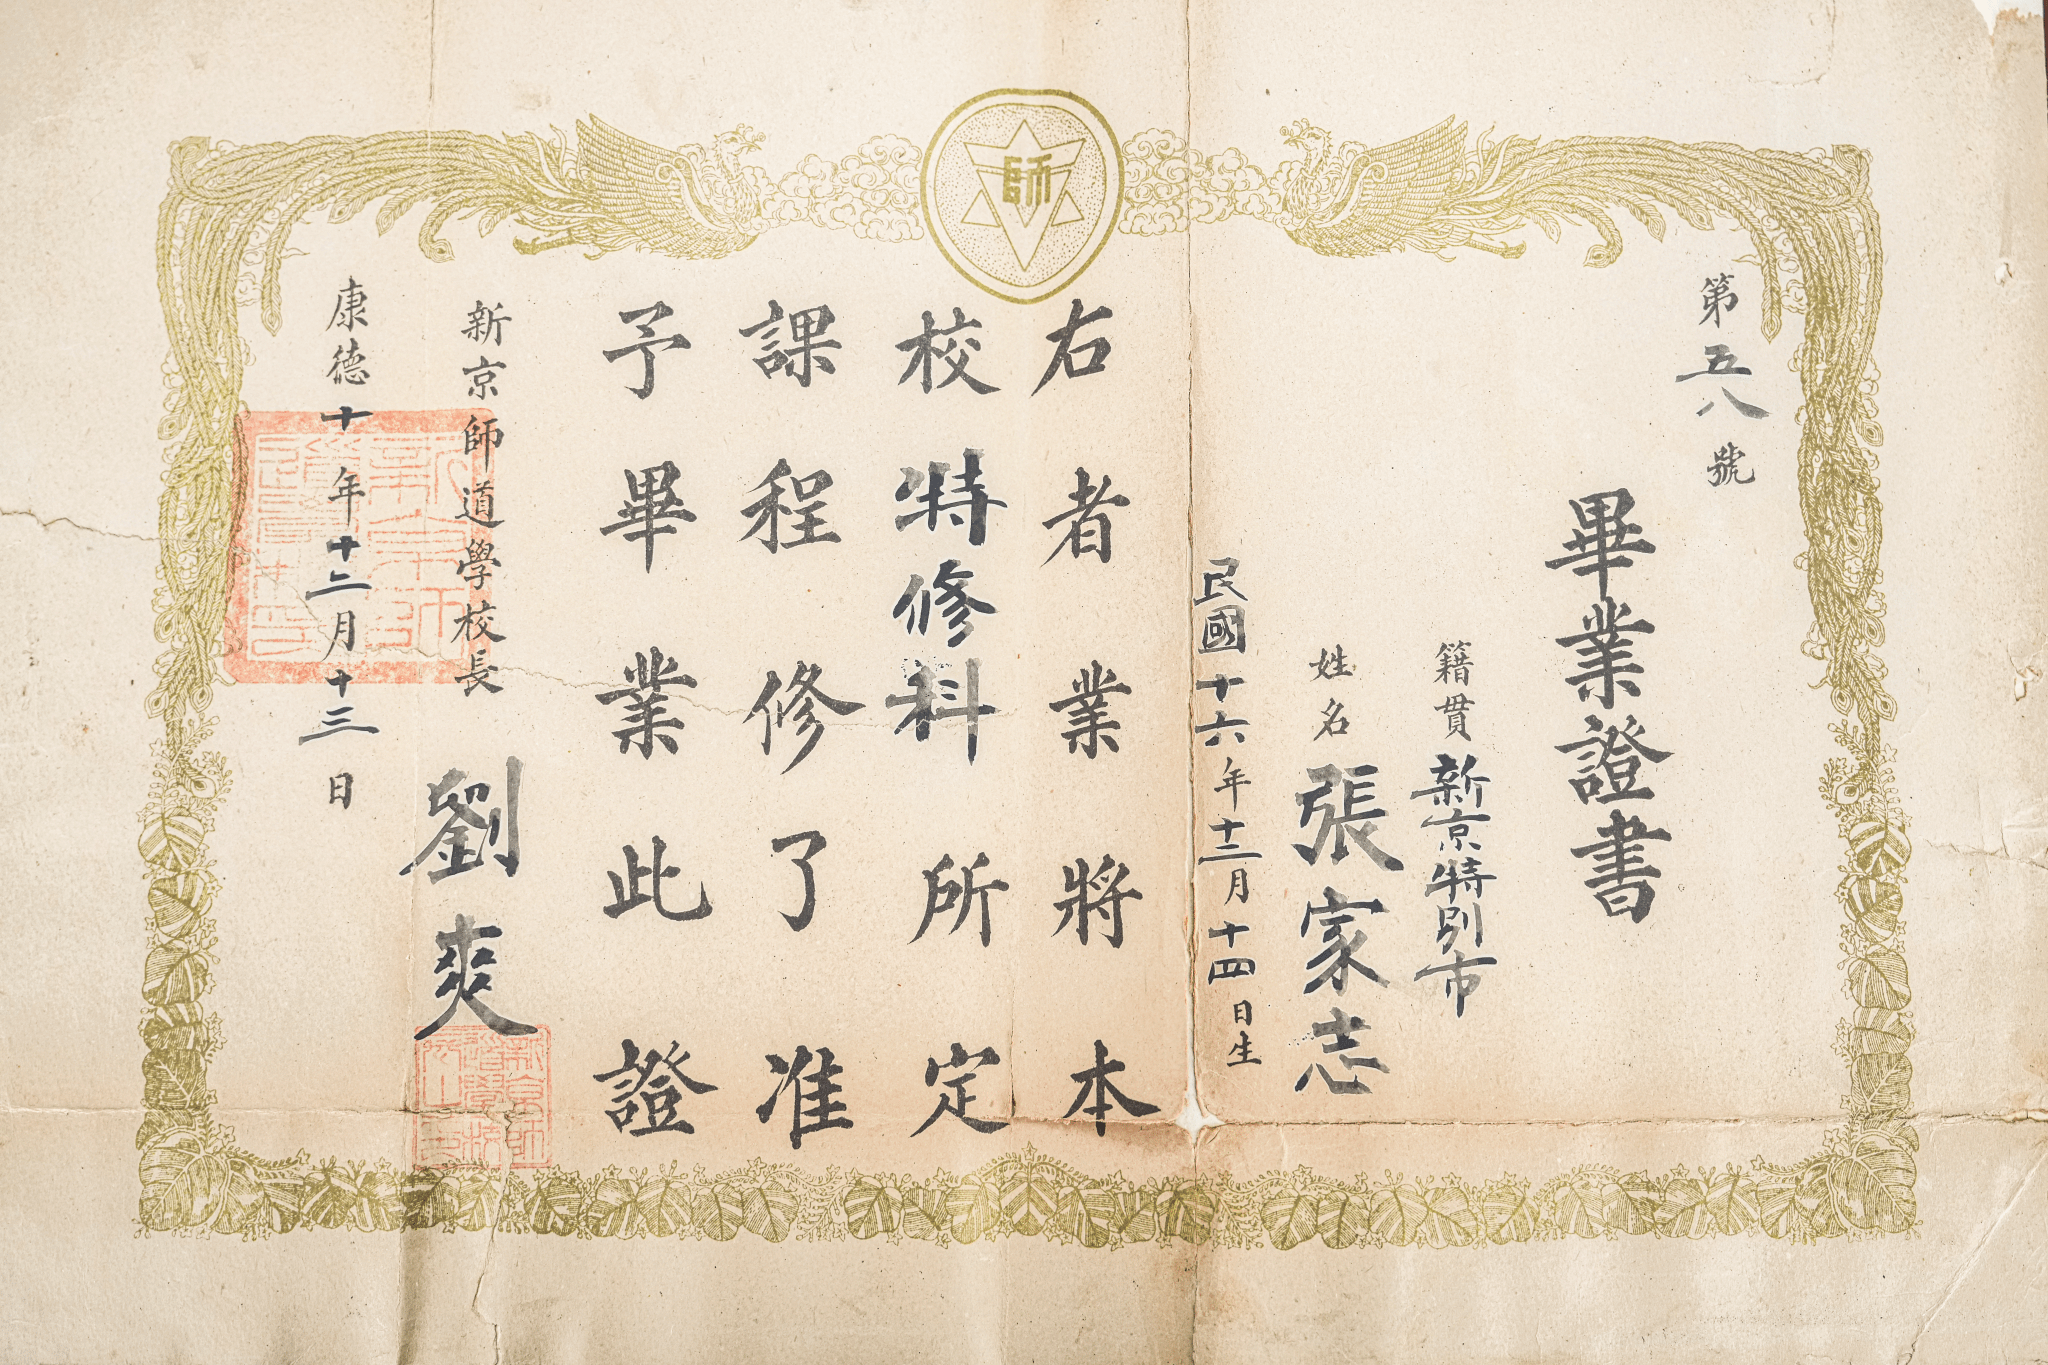 師
第五八號
畢業證書
籍貫新京特別市
姓名張家志
民國十六年十二月十四日生
右者業將本
校特修科所定
課程修了准
予畢業此證
新京師道學校長劉爽
康德十年十二月十三日